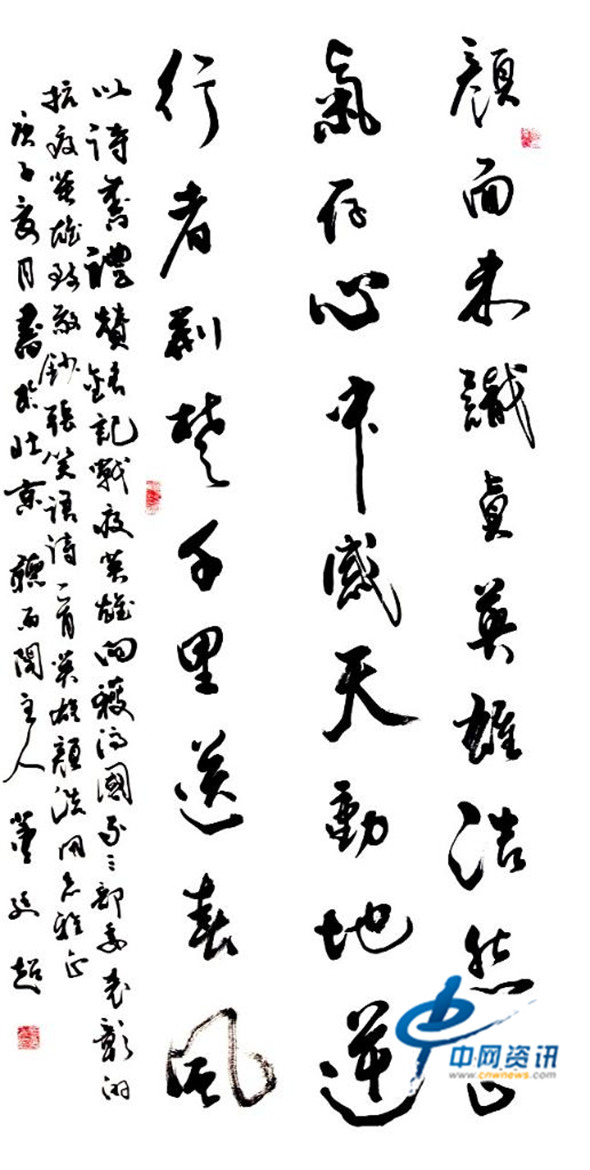 顏面未識真英雄浩然正
氣存心中感天動地逆
行者荆楚千里送春風
以詩書禮贊銘記戰疫英雄向獲得國家三部委表彰的
抗疫英雄致敬鈔張笑語詩一首英雄顏浩同志雅正
庚子夏月書於北京聽雨閣主人董延超
中网资讯
www.cnwnews.com